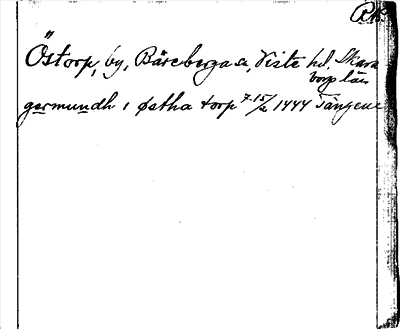 RK.
Östorp, by, Bäreberga sn, Viste hd. Skara
borgs län
germundh i østha torp 7 15/2 1444 Tängene